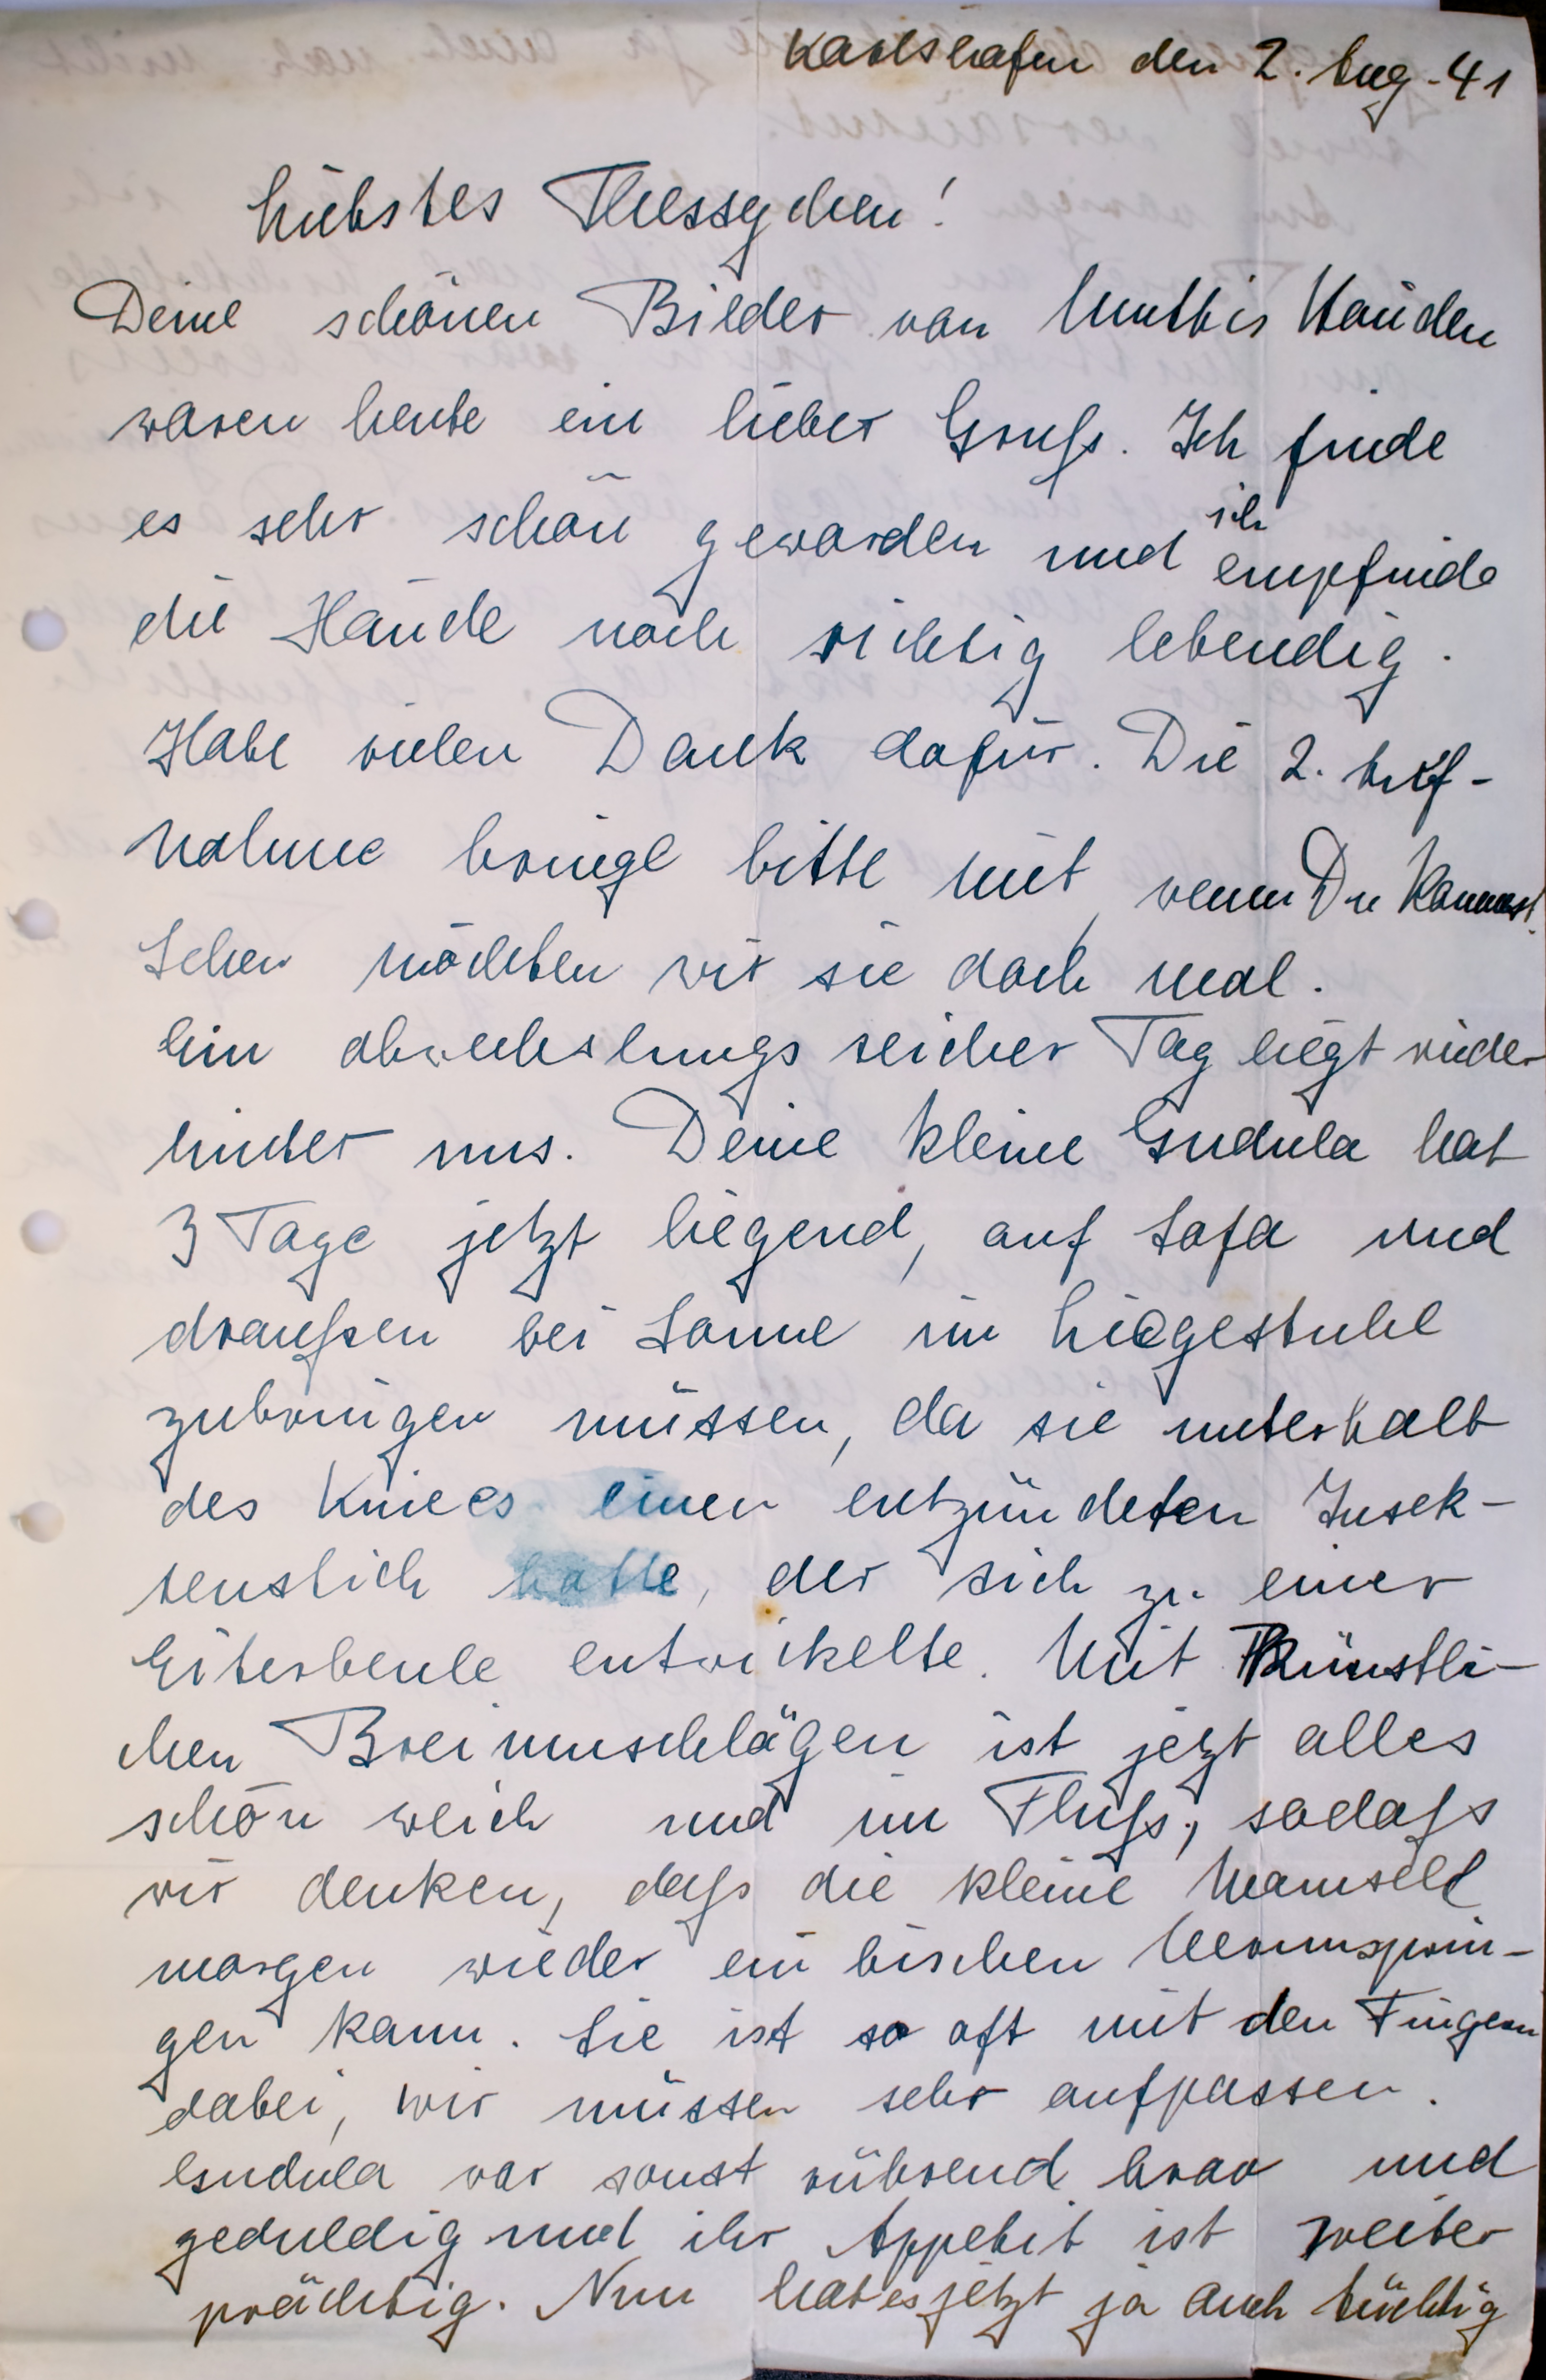 Karlshafen den 2. Aug. 41
Liebstes Thessychen!
Deine schönen Bilder von Muttis Händen
waren heute ein lieber Gruß. Ich finde
es sehr schön geworden und ich empfinde
die Hände noch richtig lebendig.
Habe vielen Dank dafür. Die 2. Auf-
nahme bringe bitte mit, wenn Du kommst.
Sehen möchten wir sie doch mal.
Ein abwechslungsreicher Tag liegt wieder
hinter uns. Deine kleine Gudula hat
3 Tage jetzt liegend, auf Sofa und
draußen bei Sonne im Liegestuhl
zubringen müssen, da sie unterhalb
des Kniees einen entzündeten Insek-
tenstich hatte, der sich zu einer
Eiterbeule entwickelte. Mit künstli-
chen Breiumschlägen ist jetzt alles
schön weich und im Fluß, sodaß
wir denken, daß die kleine Mamsell
morgen wieder ein bischen herumsprin-
gen kann. Sie ist so oft mit den Fingern
dabei, wir müssen sehr aufpassen.
Gudula war sonst rührend brav und
geduldig und ihr Appetit ist weiter
prächtig. Nun hat es jetzt ja auch tüchtig